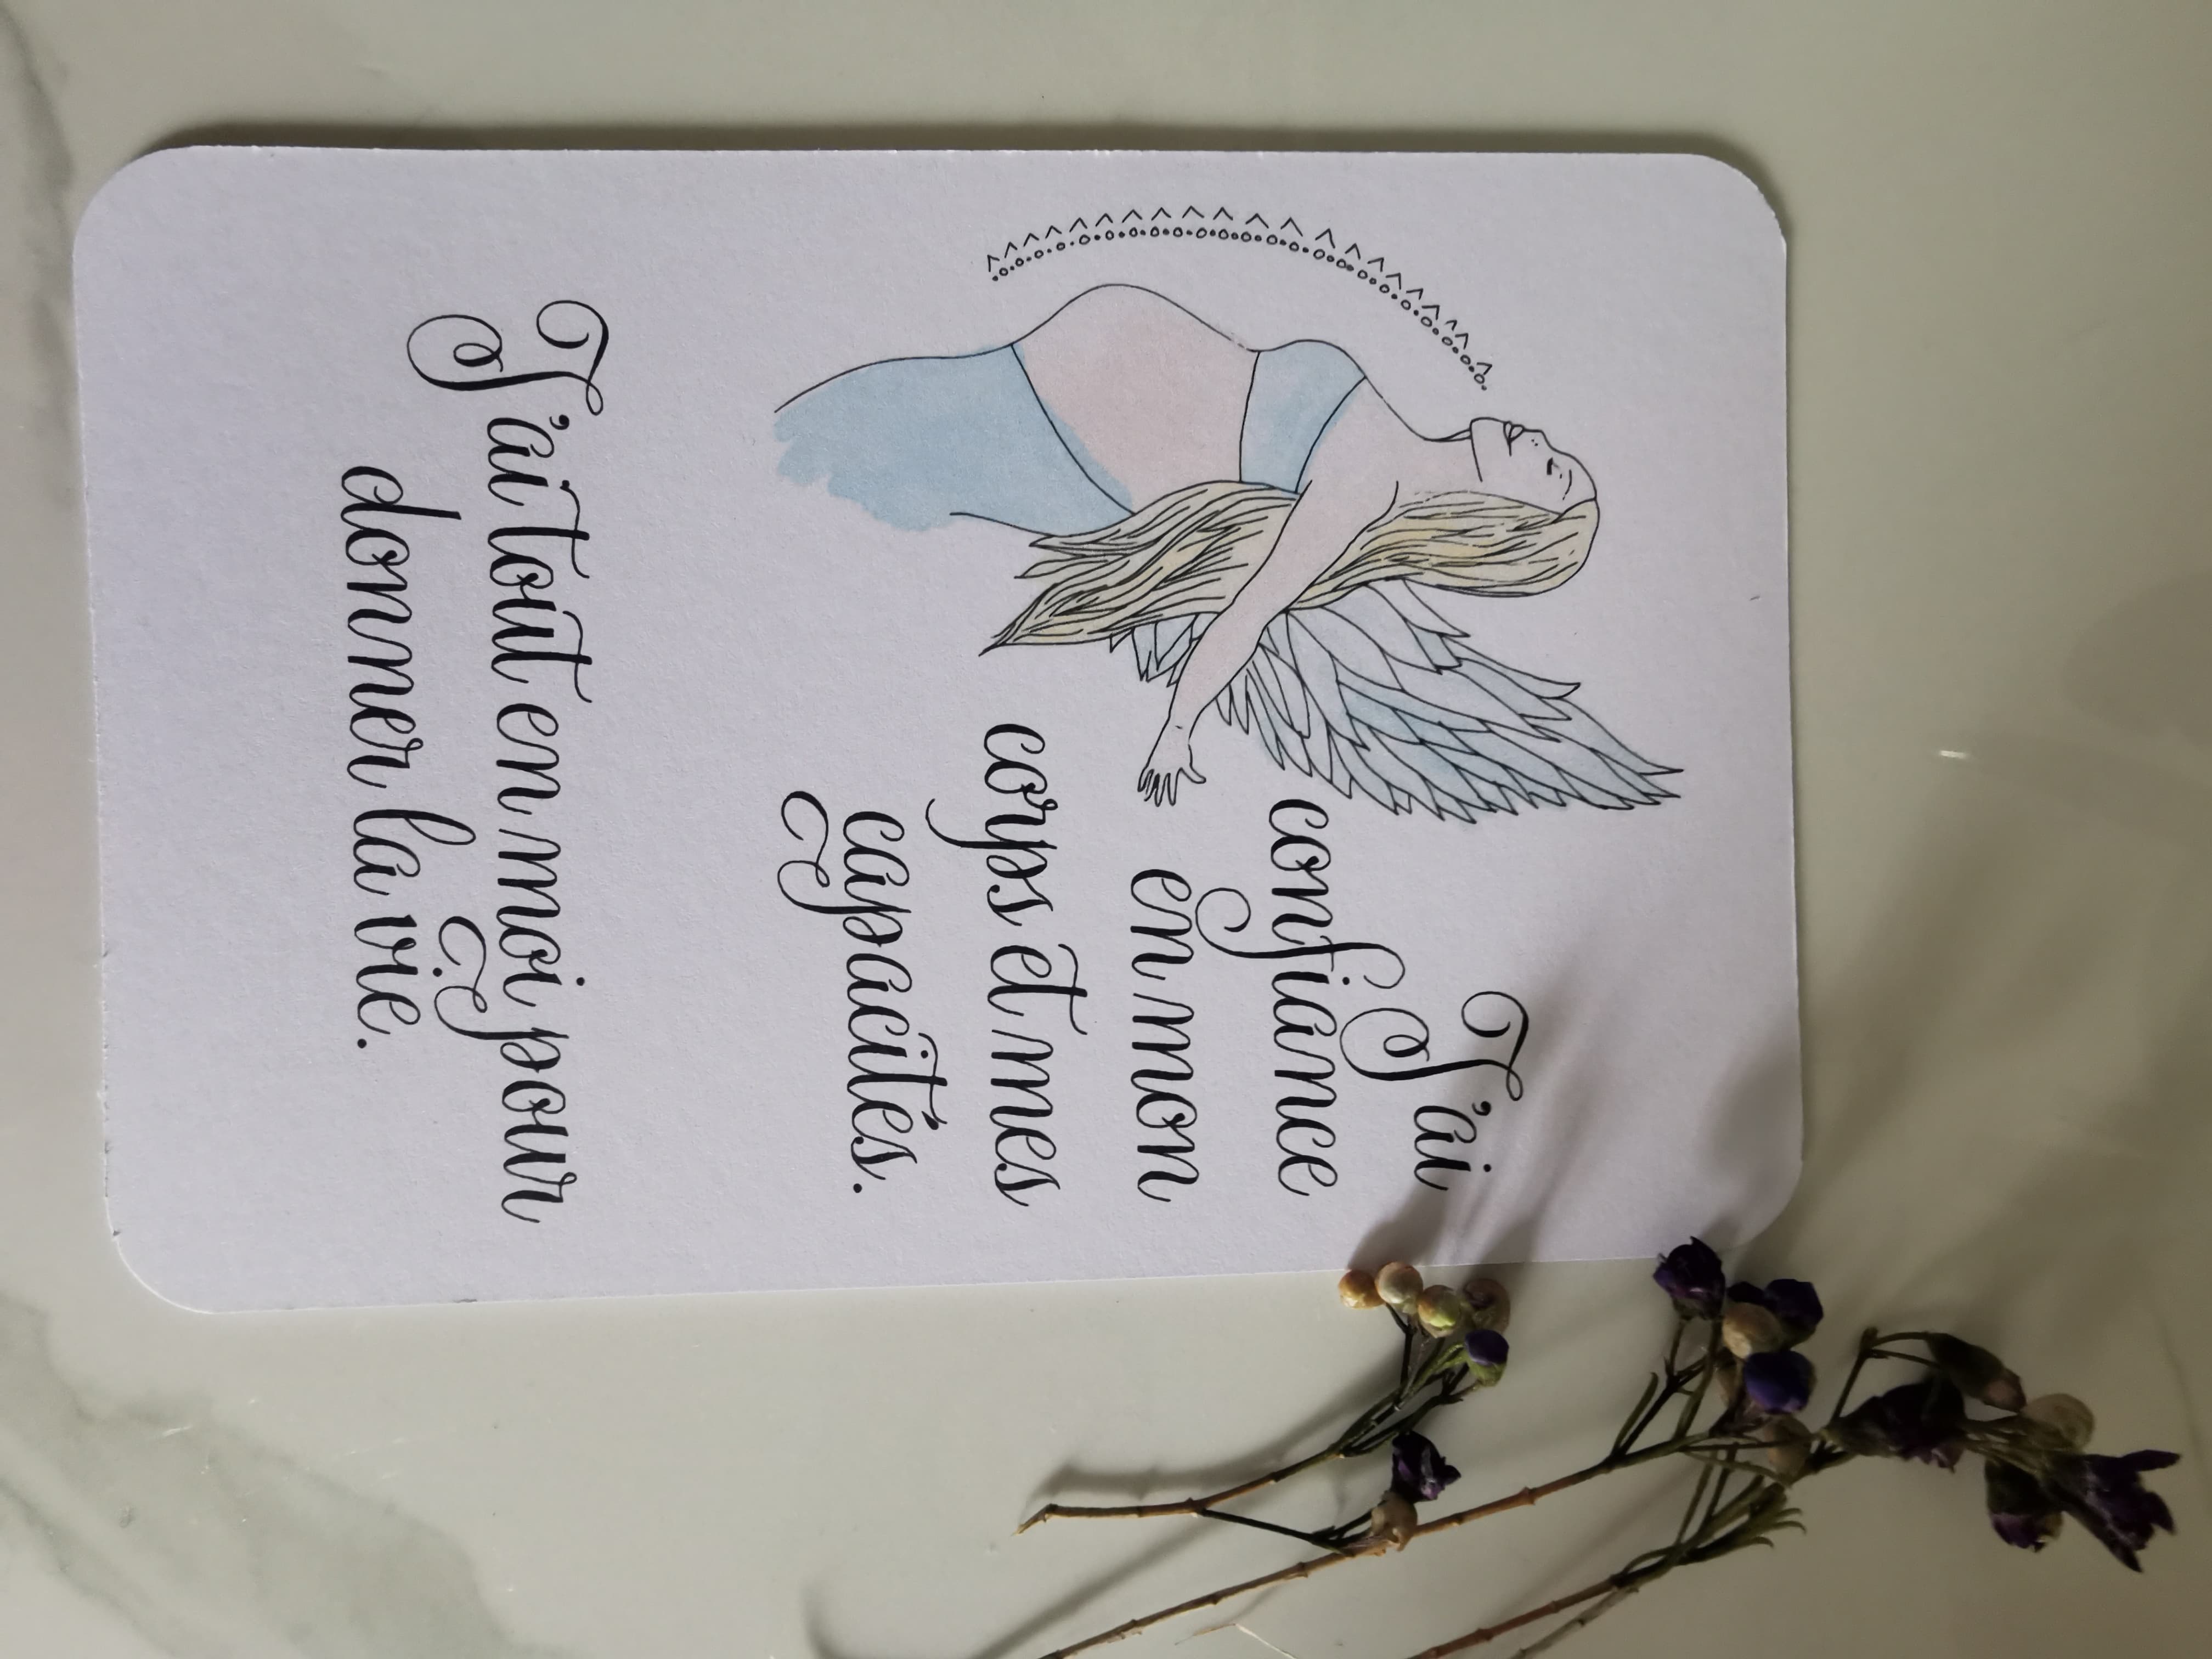 J'ai
confiance
en mon
corps et mes
capacités.
J'ai tout en moi pour
donner la vie.